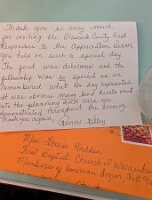 Thank you so very much
for inviting the Warrick County First
Responders to the Appreciation Dinner
held on such a special day.
The food was delicious and the
fellowship was so special as we
remembered what the day represented.
It was obvious many and hours went
into the planning with care you
demonstrated throughout the evening.
Thank you again,
Mrs. Louise Hadden
First Baptist Church of Warrenton
Members of American Legion, Post